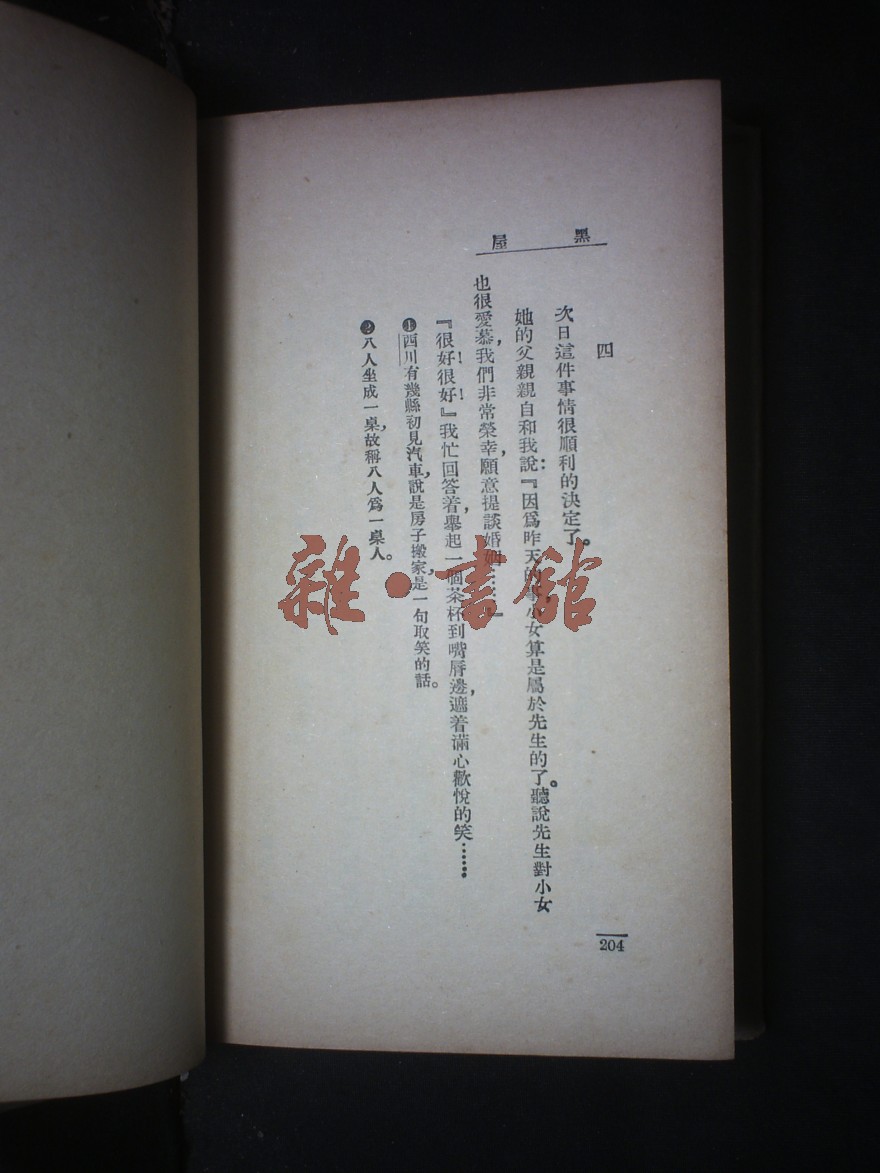 黑屋
四
次日這件事情很順利的決定了。
她的父親親自和我說：『因爲昨天的事，小女算是屬於先生的了。聽說先生對小女
也很愛慕，我們非常榮幸，願意提談婚姻……』
『很好！很好！』我忙回答着，舉起一個茶杯到嘴脣邊，遮着滿心歡悅的笑……
❶四川有幾縣初見汽車，說是房子搬家，是一句取笑的話。
❷八人坐成一桌，故稱八人爲一桌人。
204
雜·書館